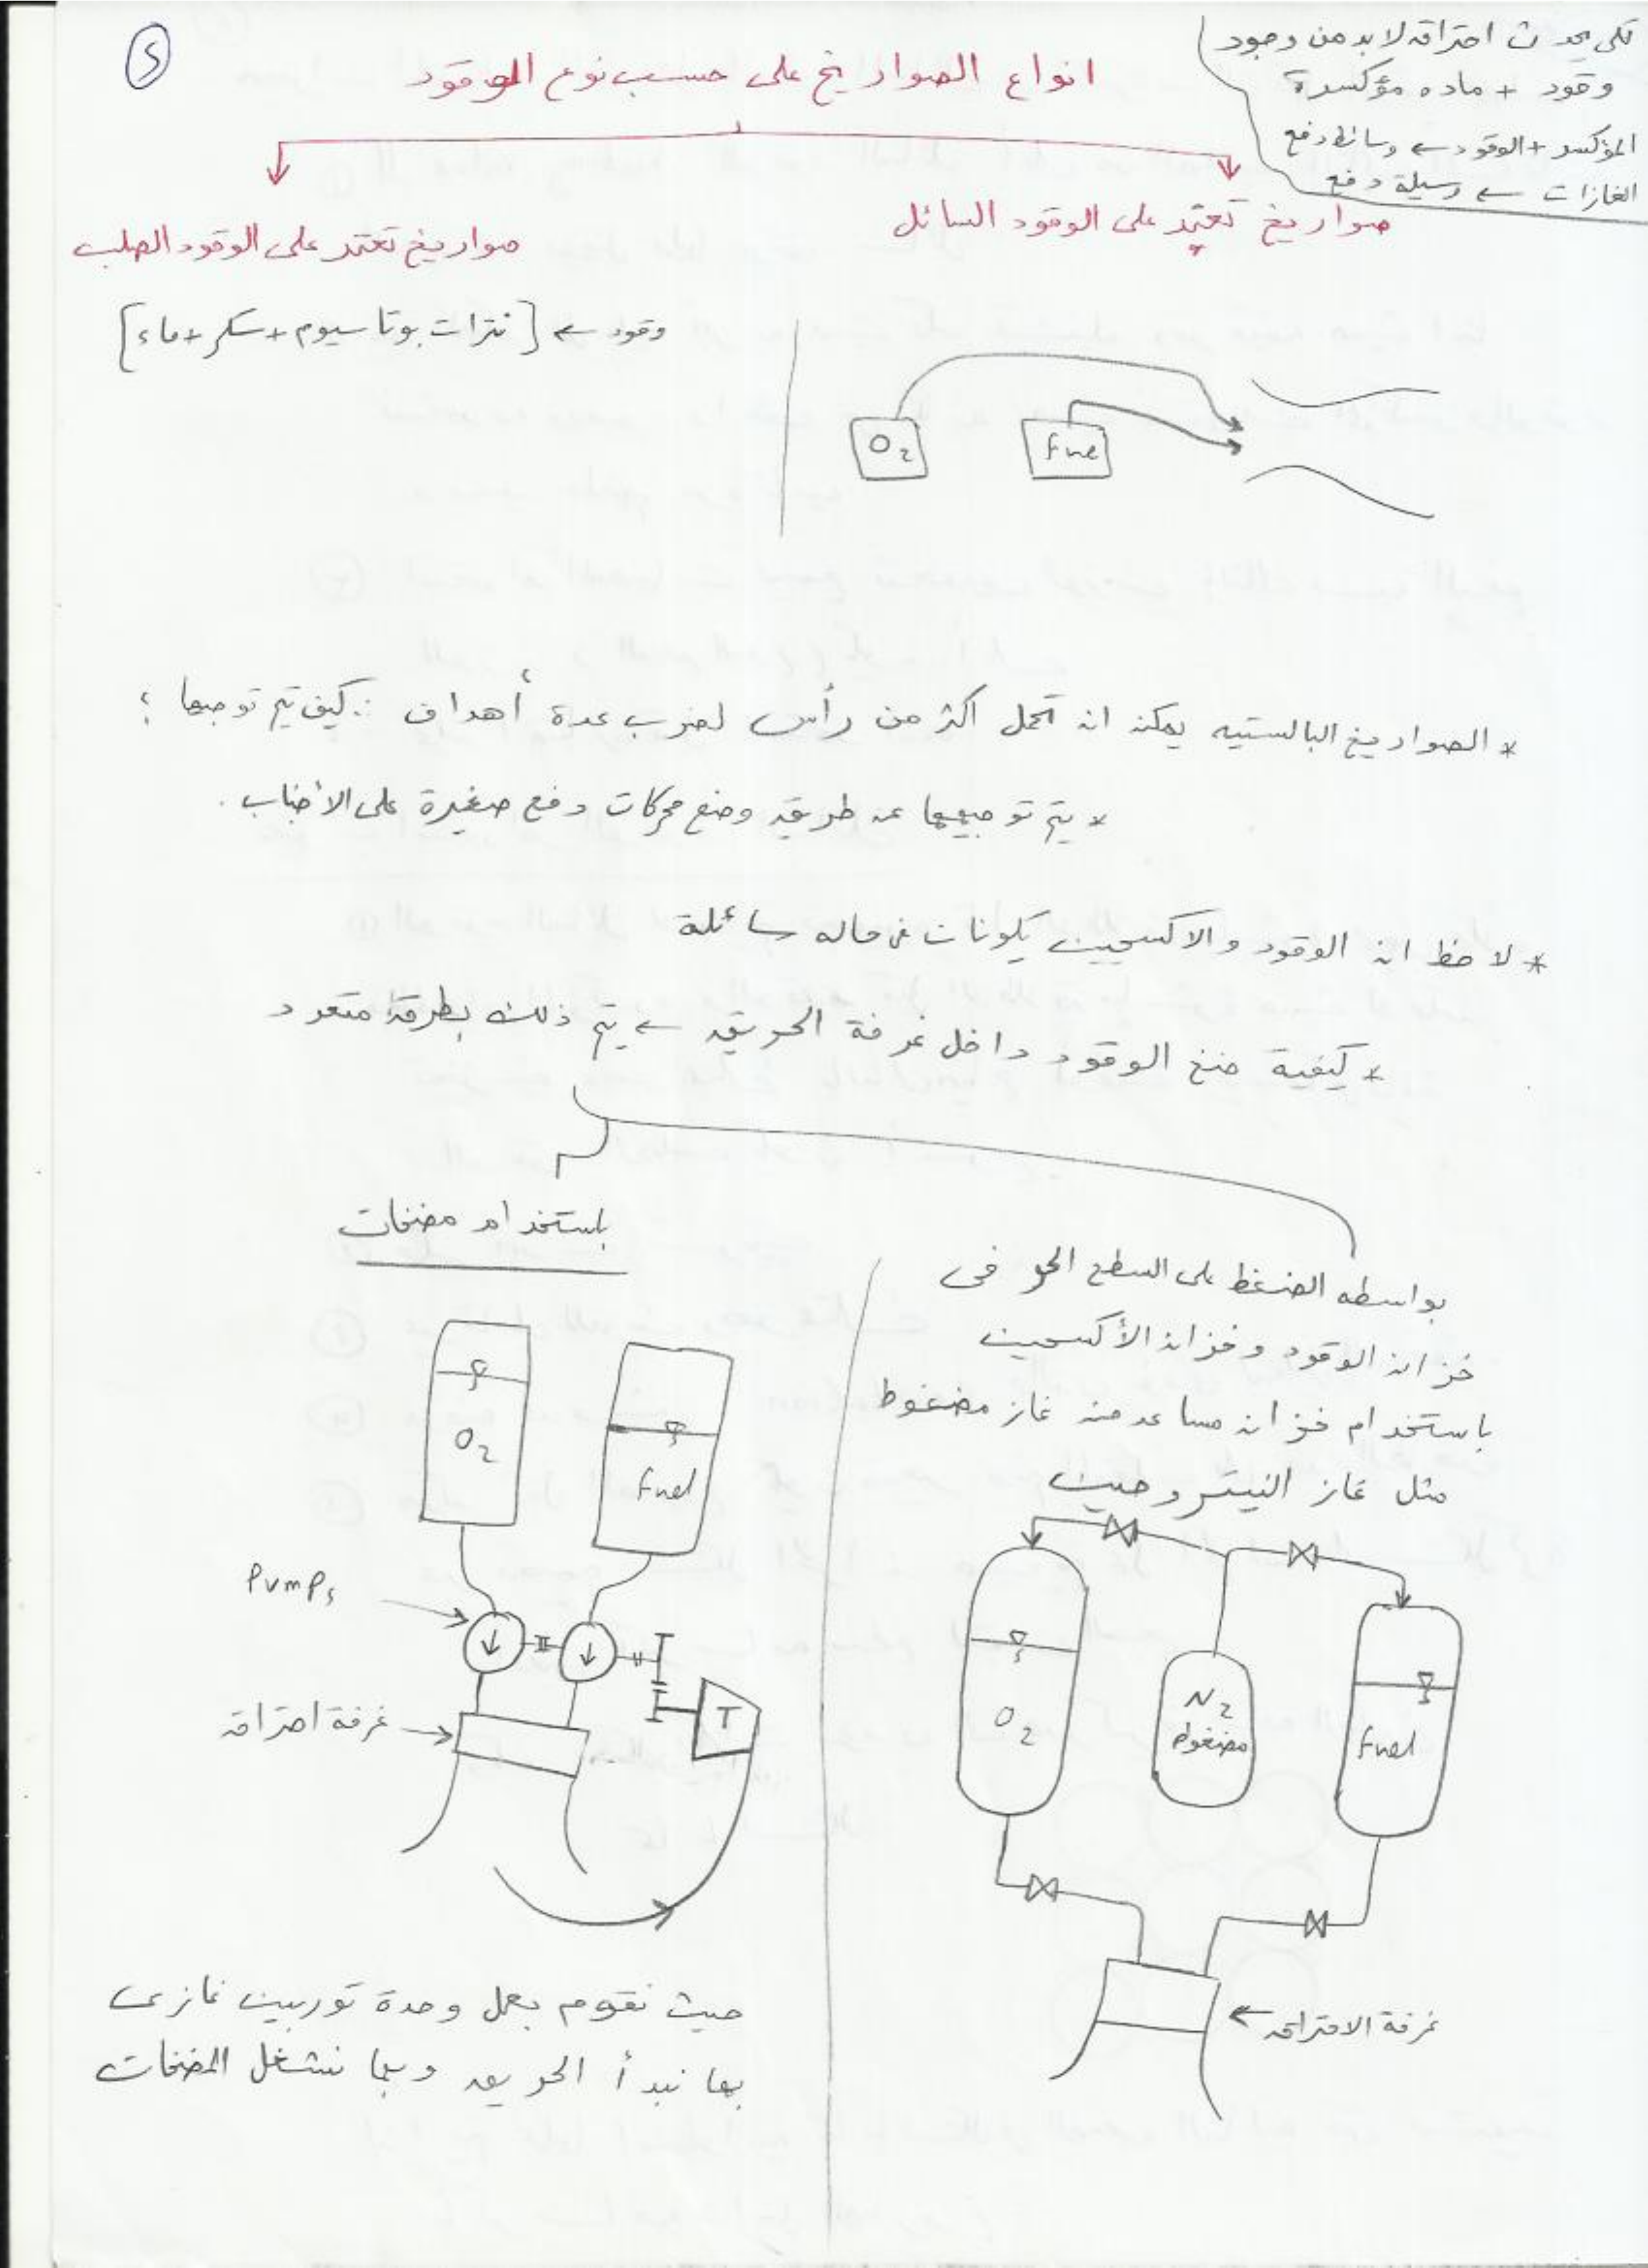 ٢
لكى يحدث احتراق لابد من وجود
وقود + ماده مؤكسدة
المؤكسد + الوقود ← وسائط دفع
الغازات ← وسيلة دفع
انواع الصواريخ على حسب نوع الوقود
صواريخ تعتمد على الوقود السائل
صواريخ تعتمد على الوقود الصلب
وقود ← [نترات بوتاسيوم + سكر + ماء]
O2
Fue
* الصواريخ البالستيه يمكن ان تحمل اكثر من رأس لضرب عدة أهداف ∴ كيف يتم توجيها ؟
* يتم توجيهها عن طريق وضع محركات دفع صغيرة على الأجناب .
* لاحظ ان الوقود والاكسجين يكونان فى حاله سائلة
* كيفية ضخ الوقود داخل غرفة الحريق ← يتم ذلك بطرق متعدد
بواسطه الضغط على السطح الحر فى
خزان الوقود وخزان الأكسجين
باستخدام خزان مساعد منه غاز مضغوط
مثل غاز النيتروجين
O2
N2
مضغوط
Fuel
غرفة الاحتراق
باستخدام مضخات
O2
Fuel
Pumps
T
غرفة احتراق
حيث نقوم بعمل وحدة توربين غازى
بها نبدأ الحريق وبها نشغل المضخات